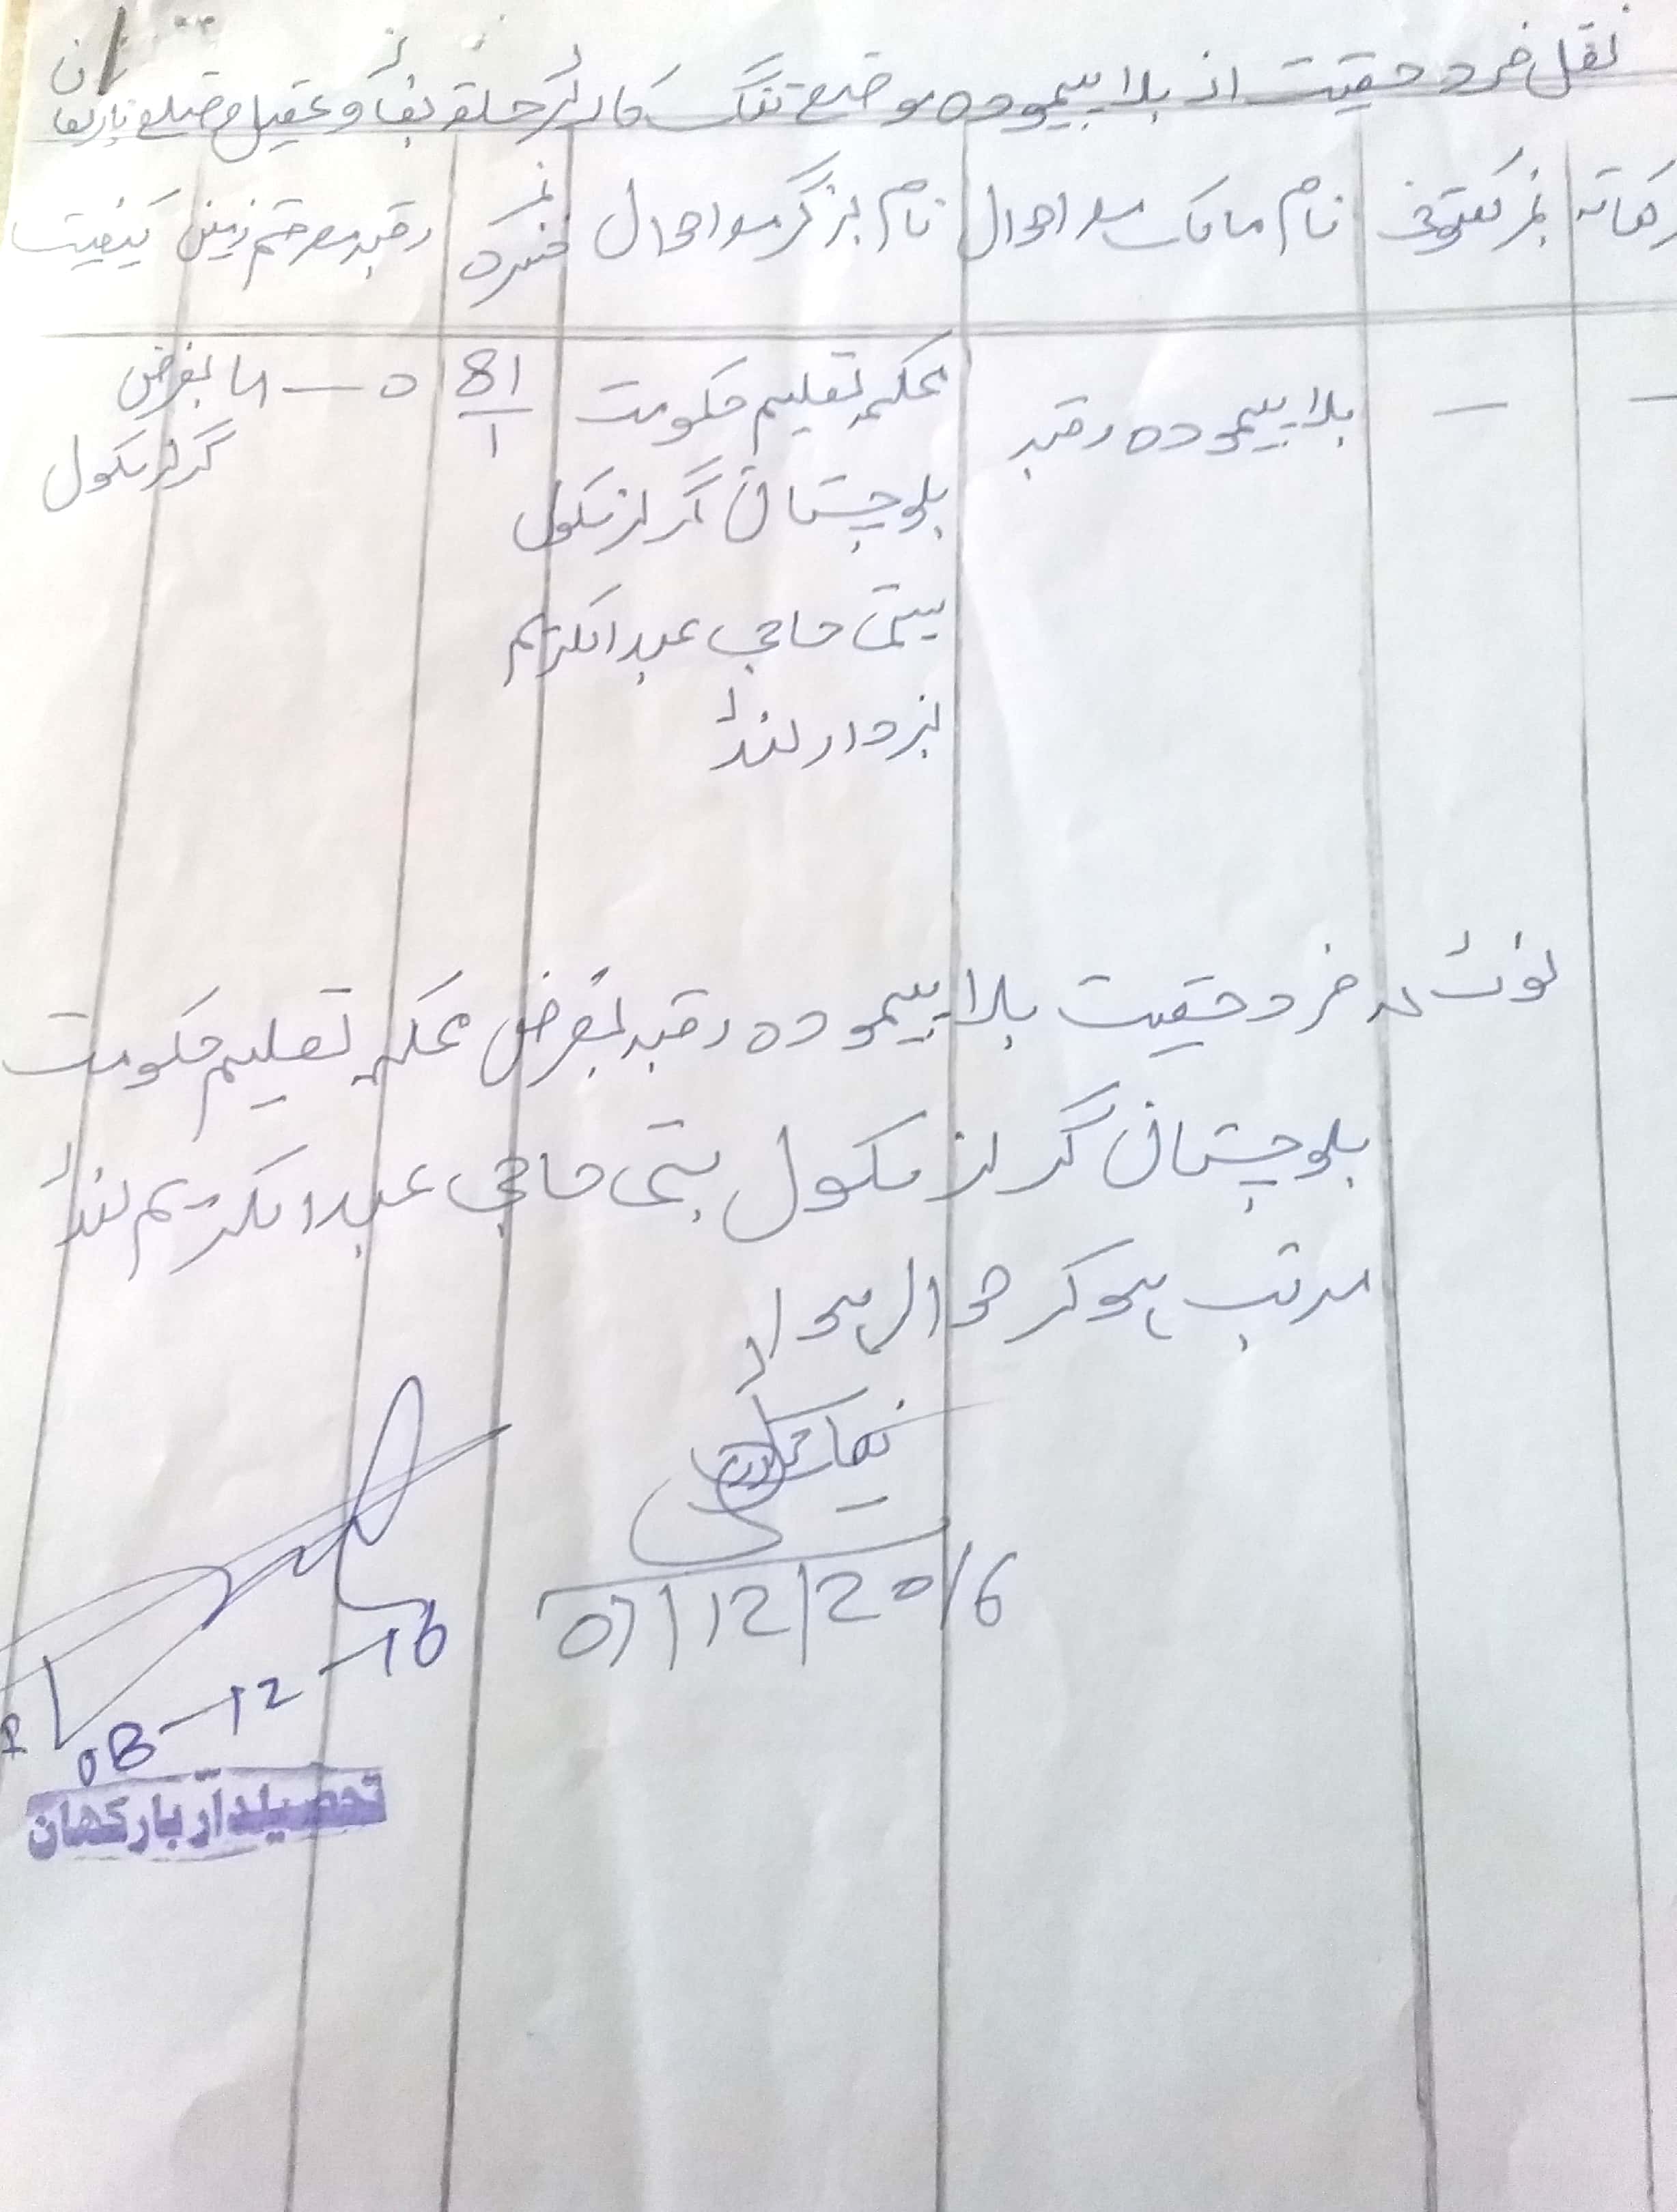 نقل فرد حقیت از بلا پیمودہ موضع تنگ کاریز حلقہ بغاؤ تحصیل و ضلع بارکھان
کھاتہ نمبر کھتونی نام مالک معہ احوال نام بزگر معہ احوال نمبر خسرہ رقبہ معہ قسم زمین کیفیت
— — بلا پیمودہ رقبہ محکمہ تعلیم حکومت 81/1 بغرض
بلوچستان گرلز سکول گرلز سکول
بستی حاجی عبدالکریم
نمبردار لنڈ
نوٹ۔ فرد حقیت بلا پیمودہ رقبہ بغرض محکمہ تعلیم حکومت
بلوچستان گرلز سکول بستی حاجی عبدالکریم لنڈ
مرتب ہو کر حوالہ ہوا
07/12/2016
08-12-16
تحصیلدار بارکھان